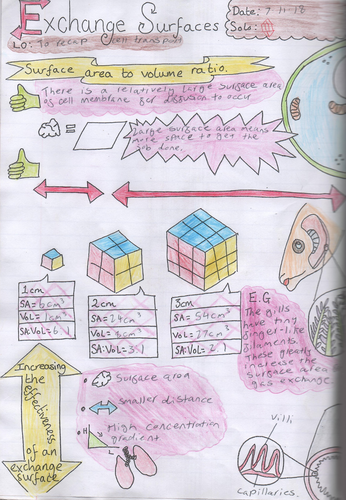 Exchange Surfaces
Date: 7-11-18
Solo:
LO: To recap cell transport
Surface area to volume ratio.
There is a relatively large surface area
of cell membrane for diffusion to occur
=
Large surface area means
more space to get the
job done.
1cm
SA=6cm²
Vol=1cm³
SA:Vol=6:1
2cm
SA=24cm²
Vol=8cm³
SA:Vol=3:1
3cm
SA=54cm²
Vol=27cm³
SA:Vol=2:1
E.G
The gills
have many
finger-like
filaments.
These greatly
increase the
surface area
gas exchange.
Increasing
the
effectiveness
of an
exchange
surface
Surface area
smaller distance
H
High concentration
gradient
L
Villi
Capillaries